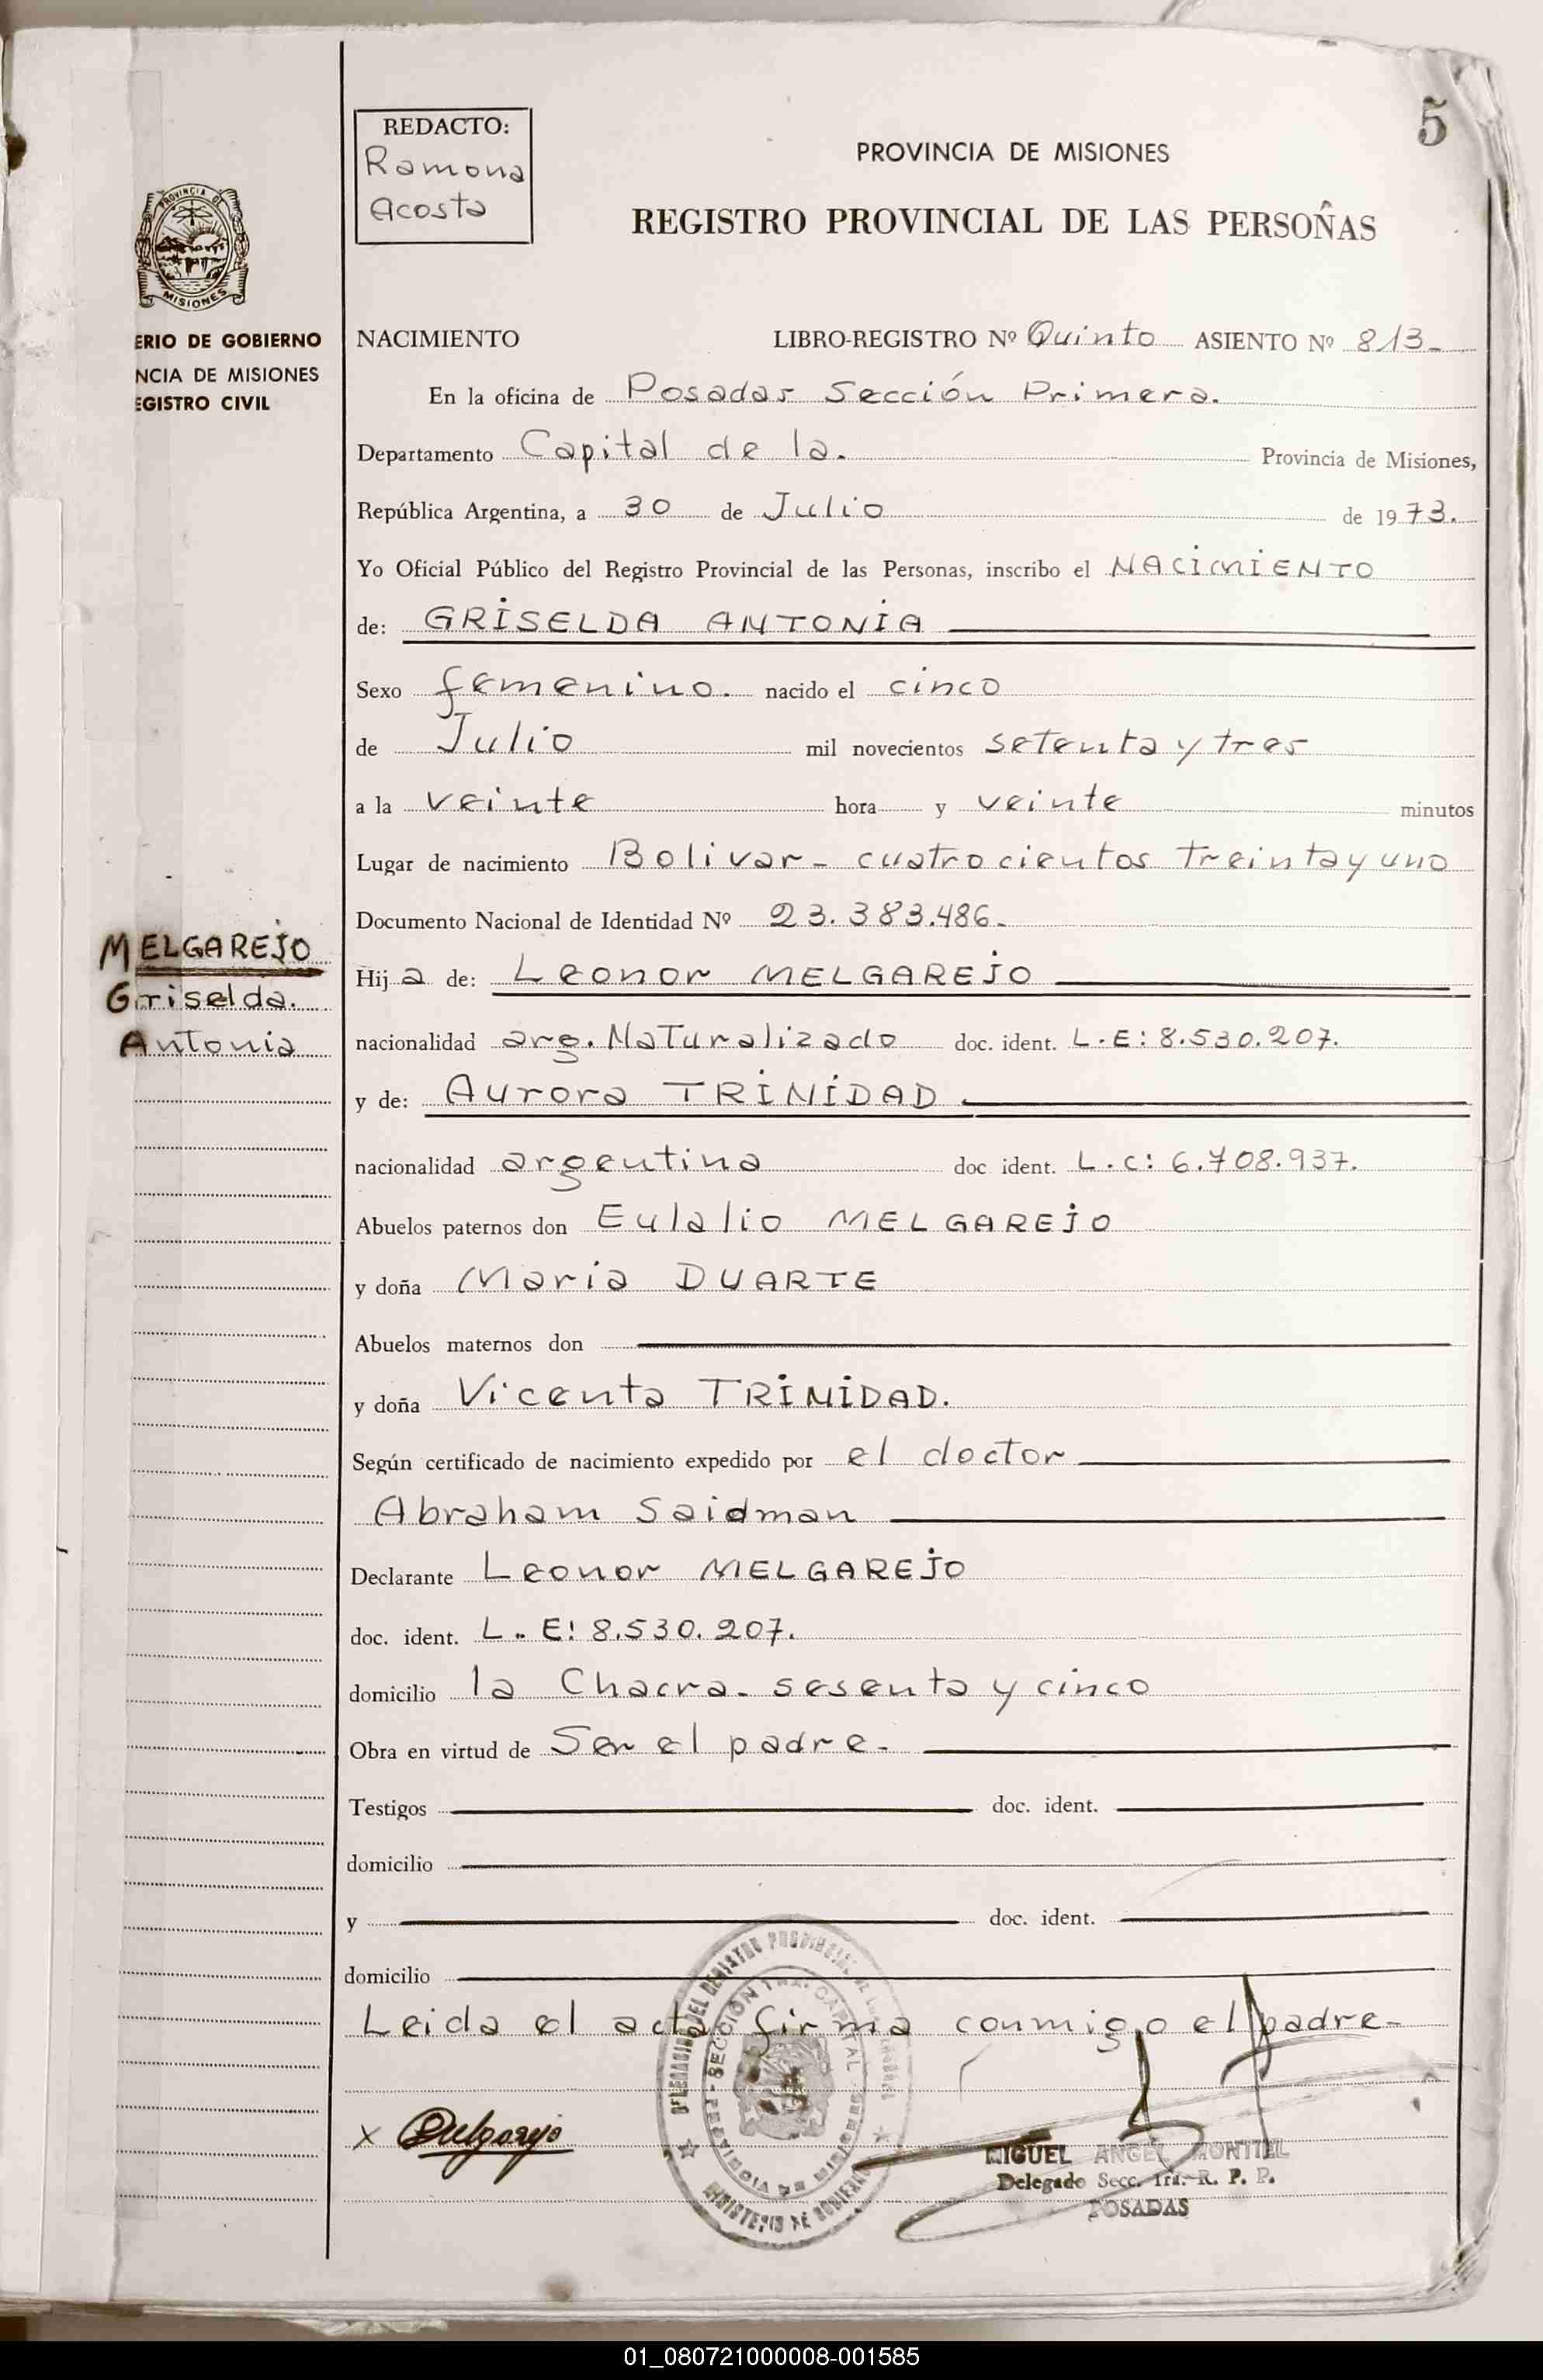 5
REDACTO:
Ramona
Acosta
PROVINCIA DE MISIONES
REGISTRO PROVINCIAL DE LAS PERSOÑAS
PROVINCIA DE
MISIONES
ERIO DE GOBIERNO
NCIA DE MISIONES
EGISTRO CIVIL
NACIMIENTO LIBRO-REGISTRO Nº Quinto ASIENTO Nº 813-
En la oficina de Posadas Sección Primera.
Departamento Capital de la. Provincia de Misiones,
República Argentina, a 30 de Julio de 1973.
Yo Oficial Público del Registro Provincial de las Personas, inscribo el NACIMIENTO
de: GRISELDA ANTONIA
Sexo femenino. nacido el cinco
de Julio mil novecientos setenta y tres
a la veinte hora y veinte minutos
Lugar de nacimiento Bolivar - cuatrocientos treinta y uno
Documento Nacional de Identidad Nº 23.383.486-
MELGAREJO
Griselda.
Antonia
Hij a de: Leonor MELGAREJO
nacionalidad arg. Naturalizado doc. ident. L.E: 8.530.207.
y de: Aurora TRINIDAD
nacionalidad argentina doc ident. L.C: 6.708.937.
Abuelos paternos don Eulalio MELGAREJO
y doña Maria DUARTE
Abuelos maternos don
y doña Vicenta TRINIDAD.
Según certificado de nacimiento expedido por el doctor
Abraham Saidman
Declarante Leonor MELGAREJO
doc. ident. L.E: 8.530.207.
domicilio la Chacra - sesenta y cinco
Obra en virtud de Ser el padre-
Testigos doc. ident.
domicilio
y doc. ident.
domicilio
Leida el acta firma conmigo el padre-
DELEGACION DEL REGISTRO PROVINCIAL DE LAS
SECCION 1RA. CAPITAL
PROVINCIA DE MISIONES
MINISTERIO DE GOBIERNO
x Melgarejo
MIGUEL ANGEL MONTIEL
Delegado Secc. 1ra.-R. P. P.
POSADAS
01_080721000008-001585